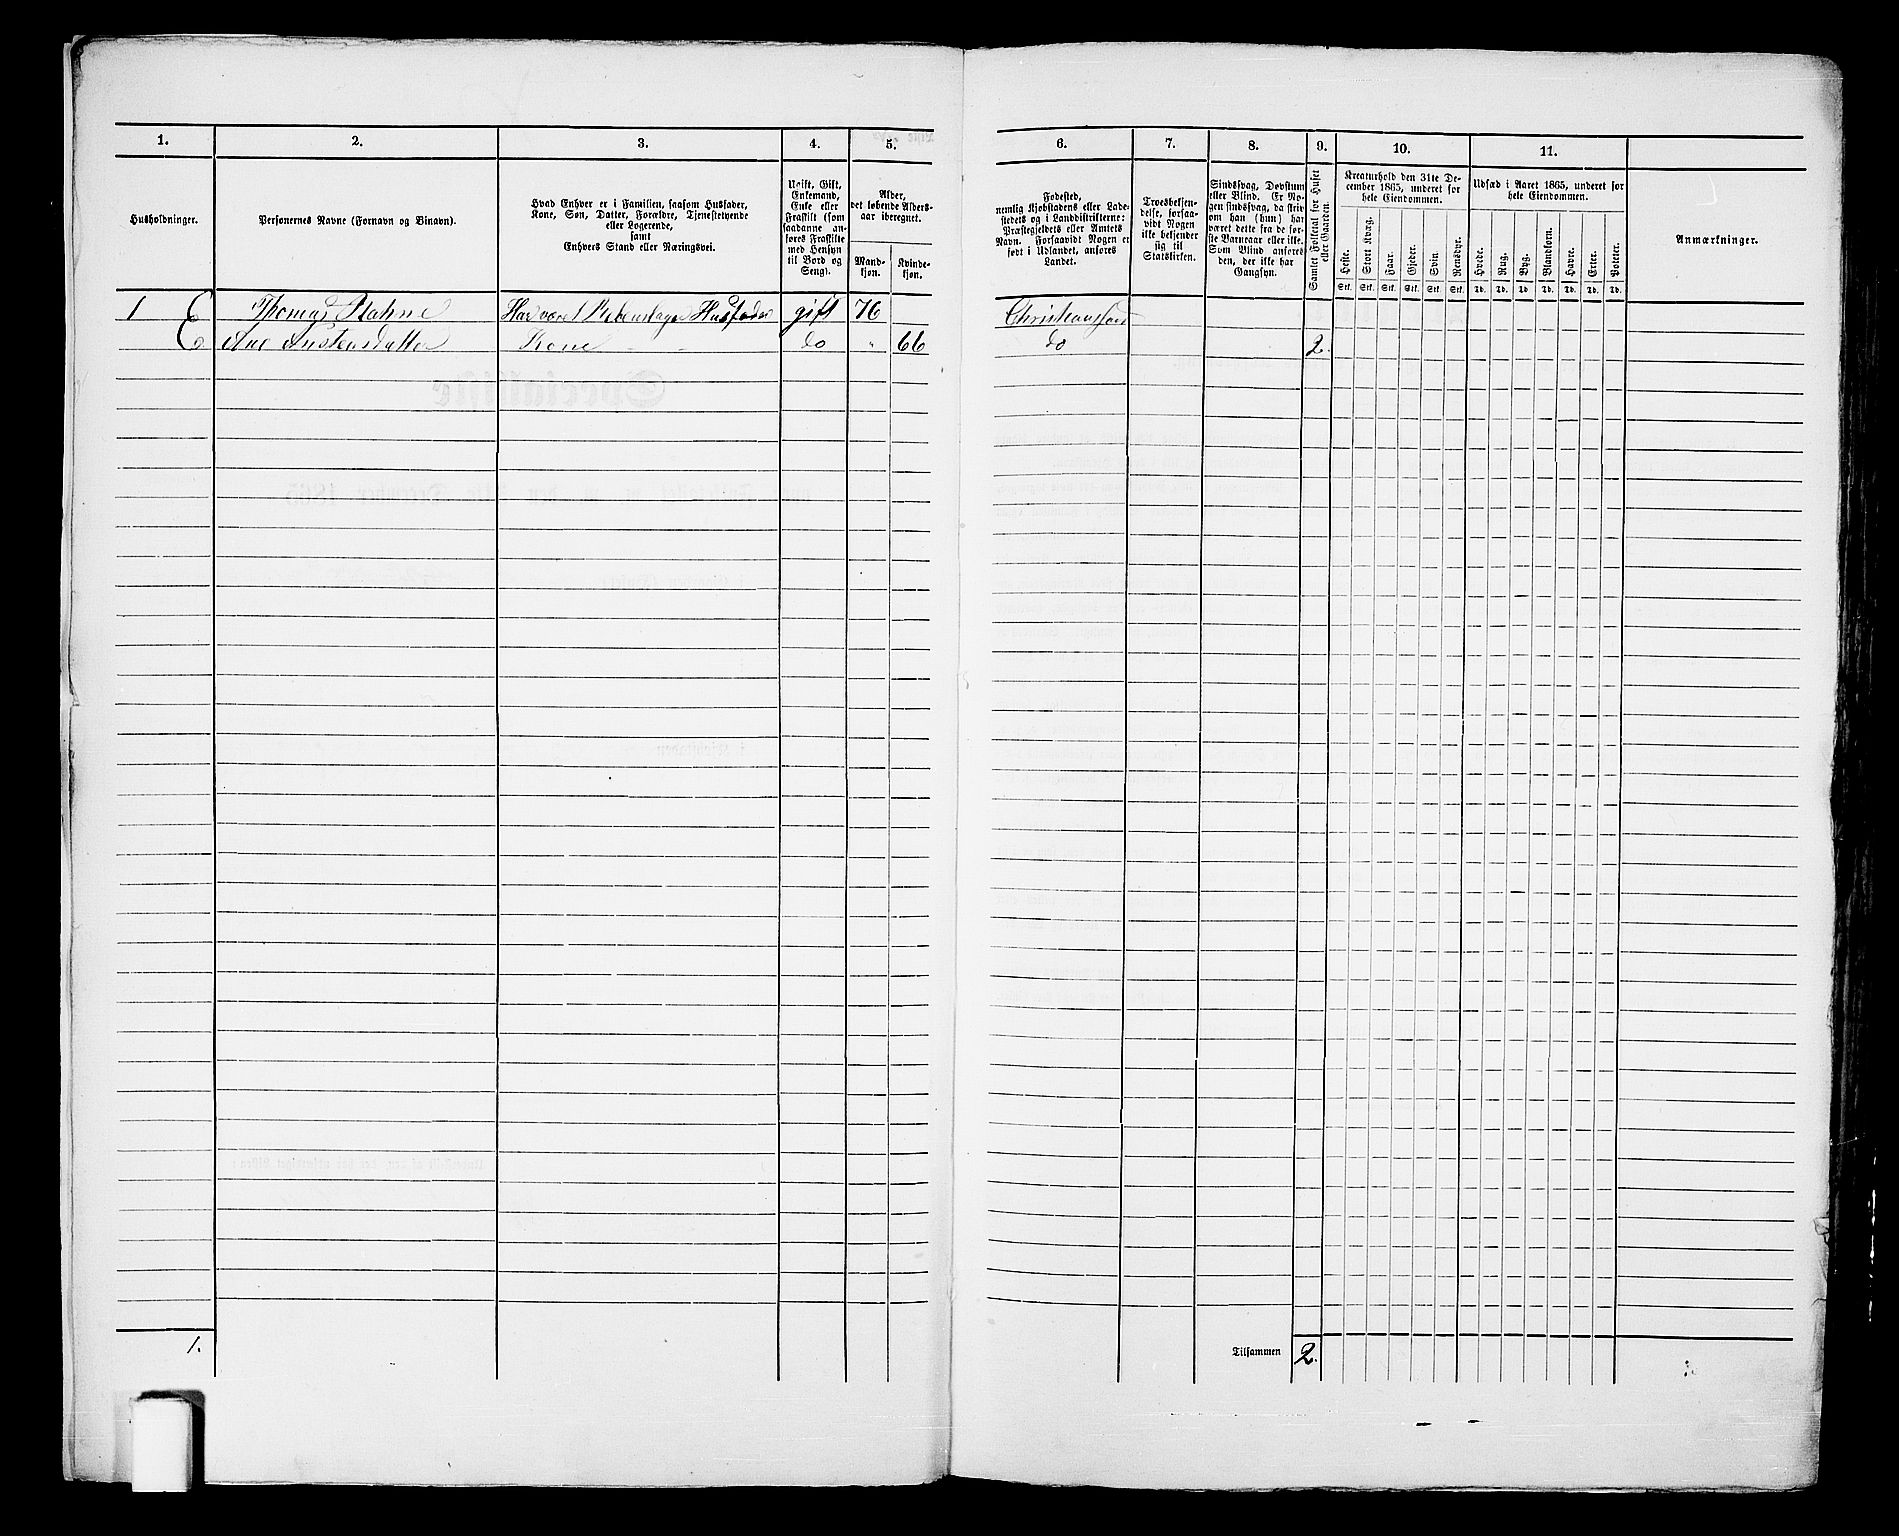 1. 2. 3. 4. 5. 6. 7. 8. 9. 10. 11.
Husholdninger.
Personernes Navne (Fornavn og Binavn).
Hvad Enhver er i Familien, saasom Husfader,
Kone, Søn, Datter, Forældre, Tjenestetyende
eller Logerende,
samt
Enhvers Stand eller Næringsvei.
Ugift, Gift,
Enkemand,
Enke eller
Fraskilt (som
saadanne an-
føres Fraskilte
med Hensyn
til Bord og
Seng).
Alder,
det løbende Alders-
aar iberegnet.
Mand-
kjøn.
Kvinde-
kjøn.
Fødested,
nemlig Kjøbstadens eller Lade-
stedets og i Landdistrikterne:
Præstegjeldets eller Amtets
Navn. Forsaavidt Nogen er
født i Udlandet, anføres
Landet.
Troesbekjen-
delse, forsaa-
vidt Nogen
ikke bekjender
sig til
Statskirken.
Sindssvag, Døvstum
eller Blind. Er No-
gen sindssvag, da skriv
om han (hun) har
været dette fra de før-
ste Barneaar eller ikke.
Som Blind anføres
den, der ikke har
Gangsyn.
Samlet Folketal for Huset
eller Gaarden.
Kreaturhold den 31te De-
cember 1865, underet for
hele Eiendommen.
Heste. Stort Kvæg. Faar. Gjeder. Svin. Rensdyr.
Stk. Stk. Stk. Stk. Stk. Stk.
Udsæd i Aaret 1865, underet for
hele Eiendommen.
Hvede. Rug. Byg. Blandkorn. Havre. Erter. Poteter.
Td. Td. Td. Td. Td. Td. Td.
Anmærkninger.
1 E Thomas Har været Husfader gift 76 Christianssand
Ane Austensdatter Kone - - do " 66 do 2.
1. Tilsammen 2.